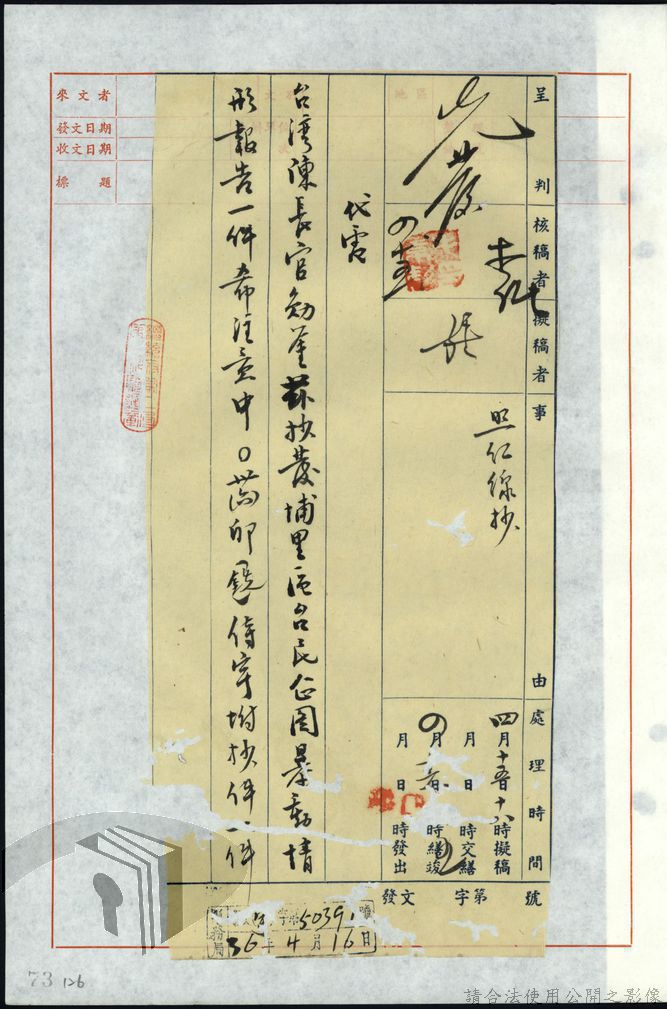 呈判
核稿者
擬稿者
事由
處理時間
號
先發
照紅線抄
四月十五日十八時擬稿
月日時交繕
月日時繕竣
月日時發出
發文字第
代電
台灣陳長官勛鑒茲抄發埔里區台民企圖暴動情
形報告一件希注意中○
侍宇坿抄件一件
來文者
發文日期
收文日期
標題
5039
36年4月16日
73 126
請合法使用公開之影像